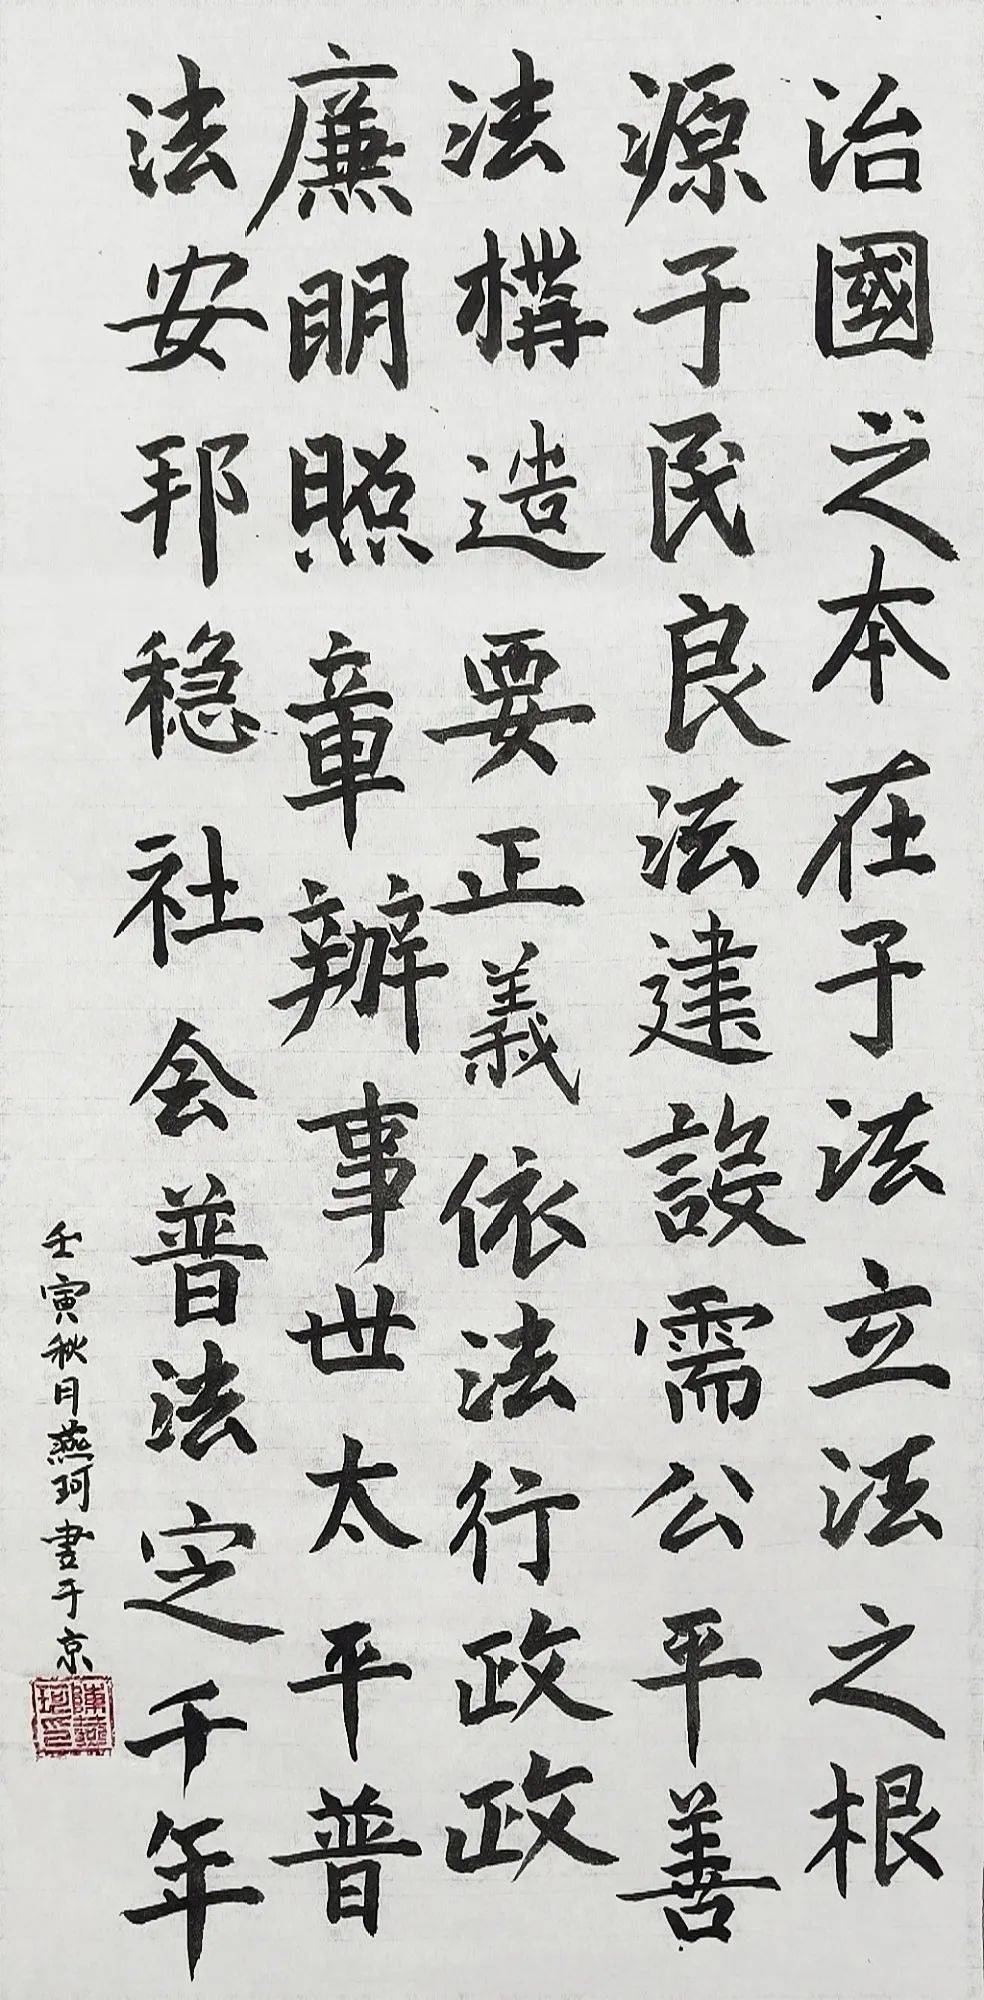 治國之本在于法立法之根
源于民良法建設需公平善
法構造要正義依法行政政
廉明照章辦事世太平普
法安邦稳社会普法定千年
壬寅秋月燕珂書于京
陳燕珂印